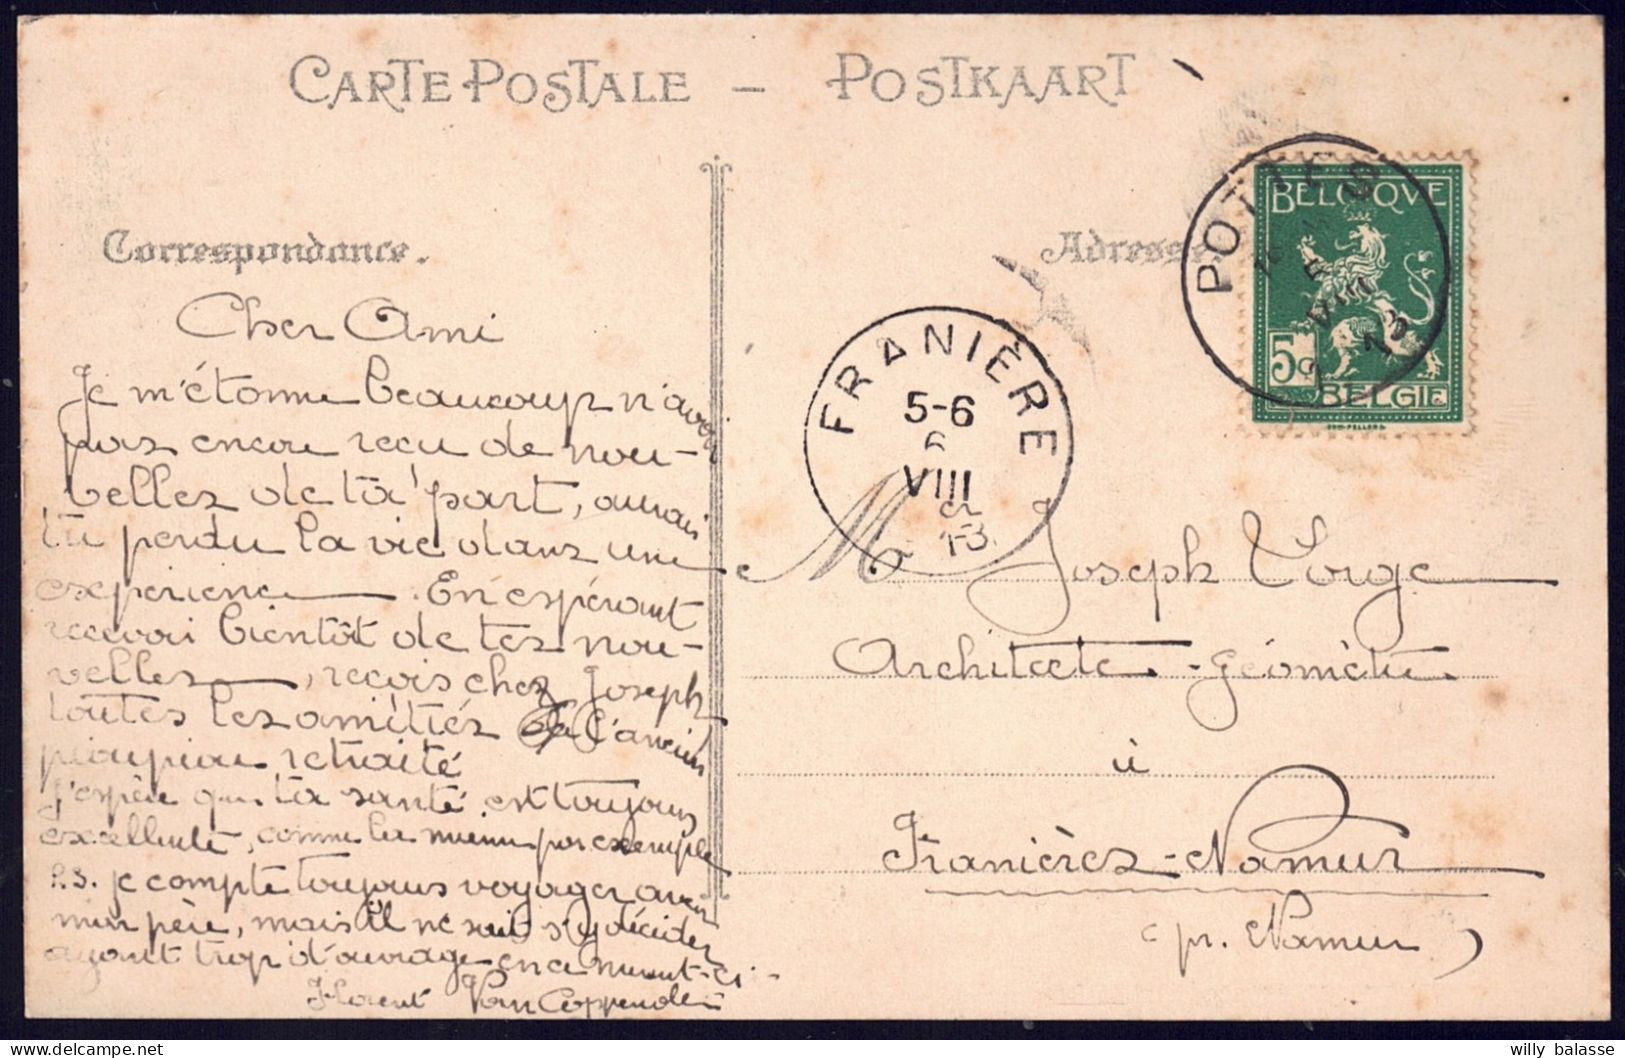 CARTE POSTALE – POSTKAART
Correspondance.
Cher Ami
Je m'étonne beaucoup n'avoir
pas encore reçu de nou-
velles de ta part, aurais
tu perdu la vie dans une
expérience. En espérant
recevoir bientôt de tes nou-
velles, reçois chez Joseph
toutes les amitiés de l'ancien
pioupiou retraité
J'espère que ta santé est toujours
excellente, comme la mienne par exemple
P.S. je compte toujours voyager avec
mon père, mais il ne sait s'y décider
ayant trop d'ouvrage en ce moment-ci-
Florent Van Coppenolle
Adresse.
POTTES
VIII
13
BELGIQVE
5c
BELGIE
FRANIÈRE
5-6
6
VIII
13
M Joseph Lorge
Architecte-Géomètre
à
Franières-Namur
(pr. Namur)
willy balasse